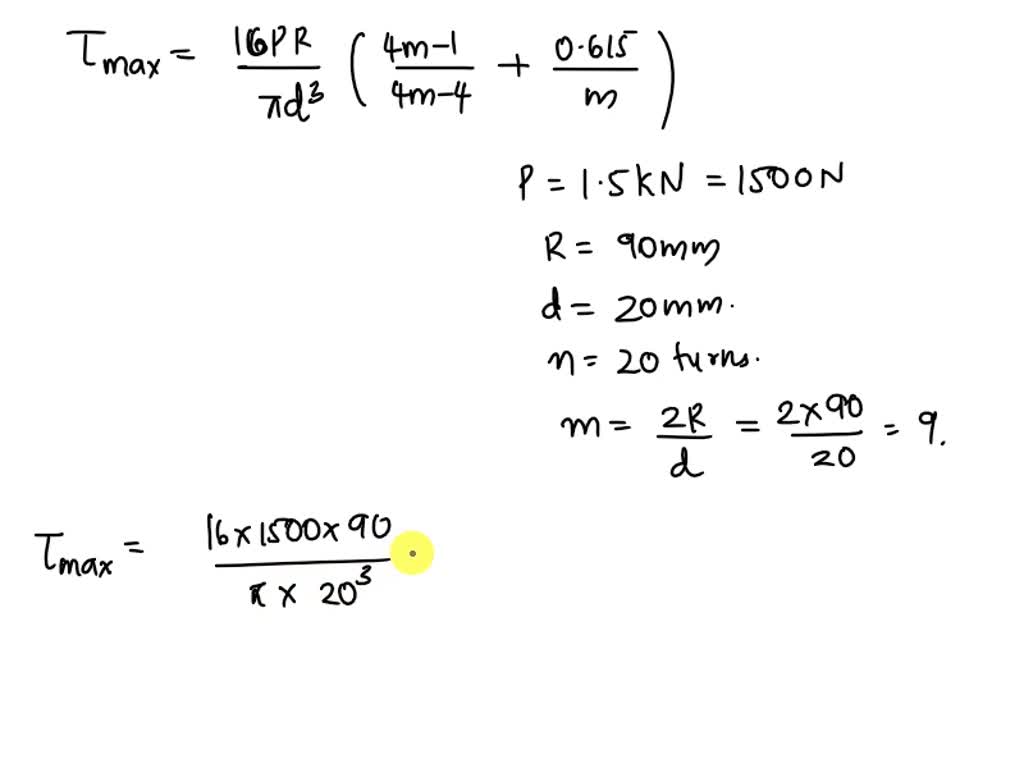 τmax = 16PR / πd³ ( 4m-1 / 4m-4 + 0.615 / m )
P = 1.5kN = 1500N
R = 90mm
d = 20mm.
n = 20 turns.
m = 2R / d = 2×90 / 20 = 9.
τmax = 16×1500×90 / π × 20³